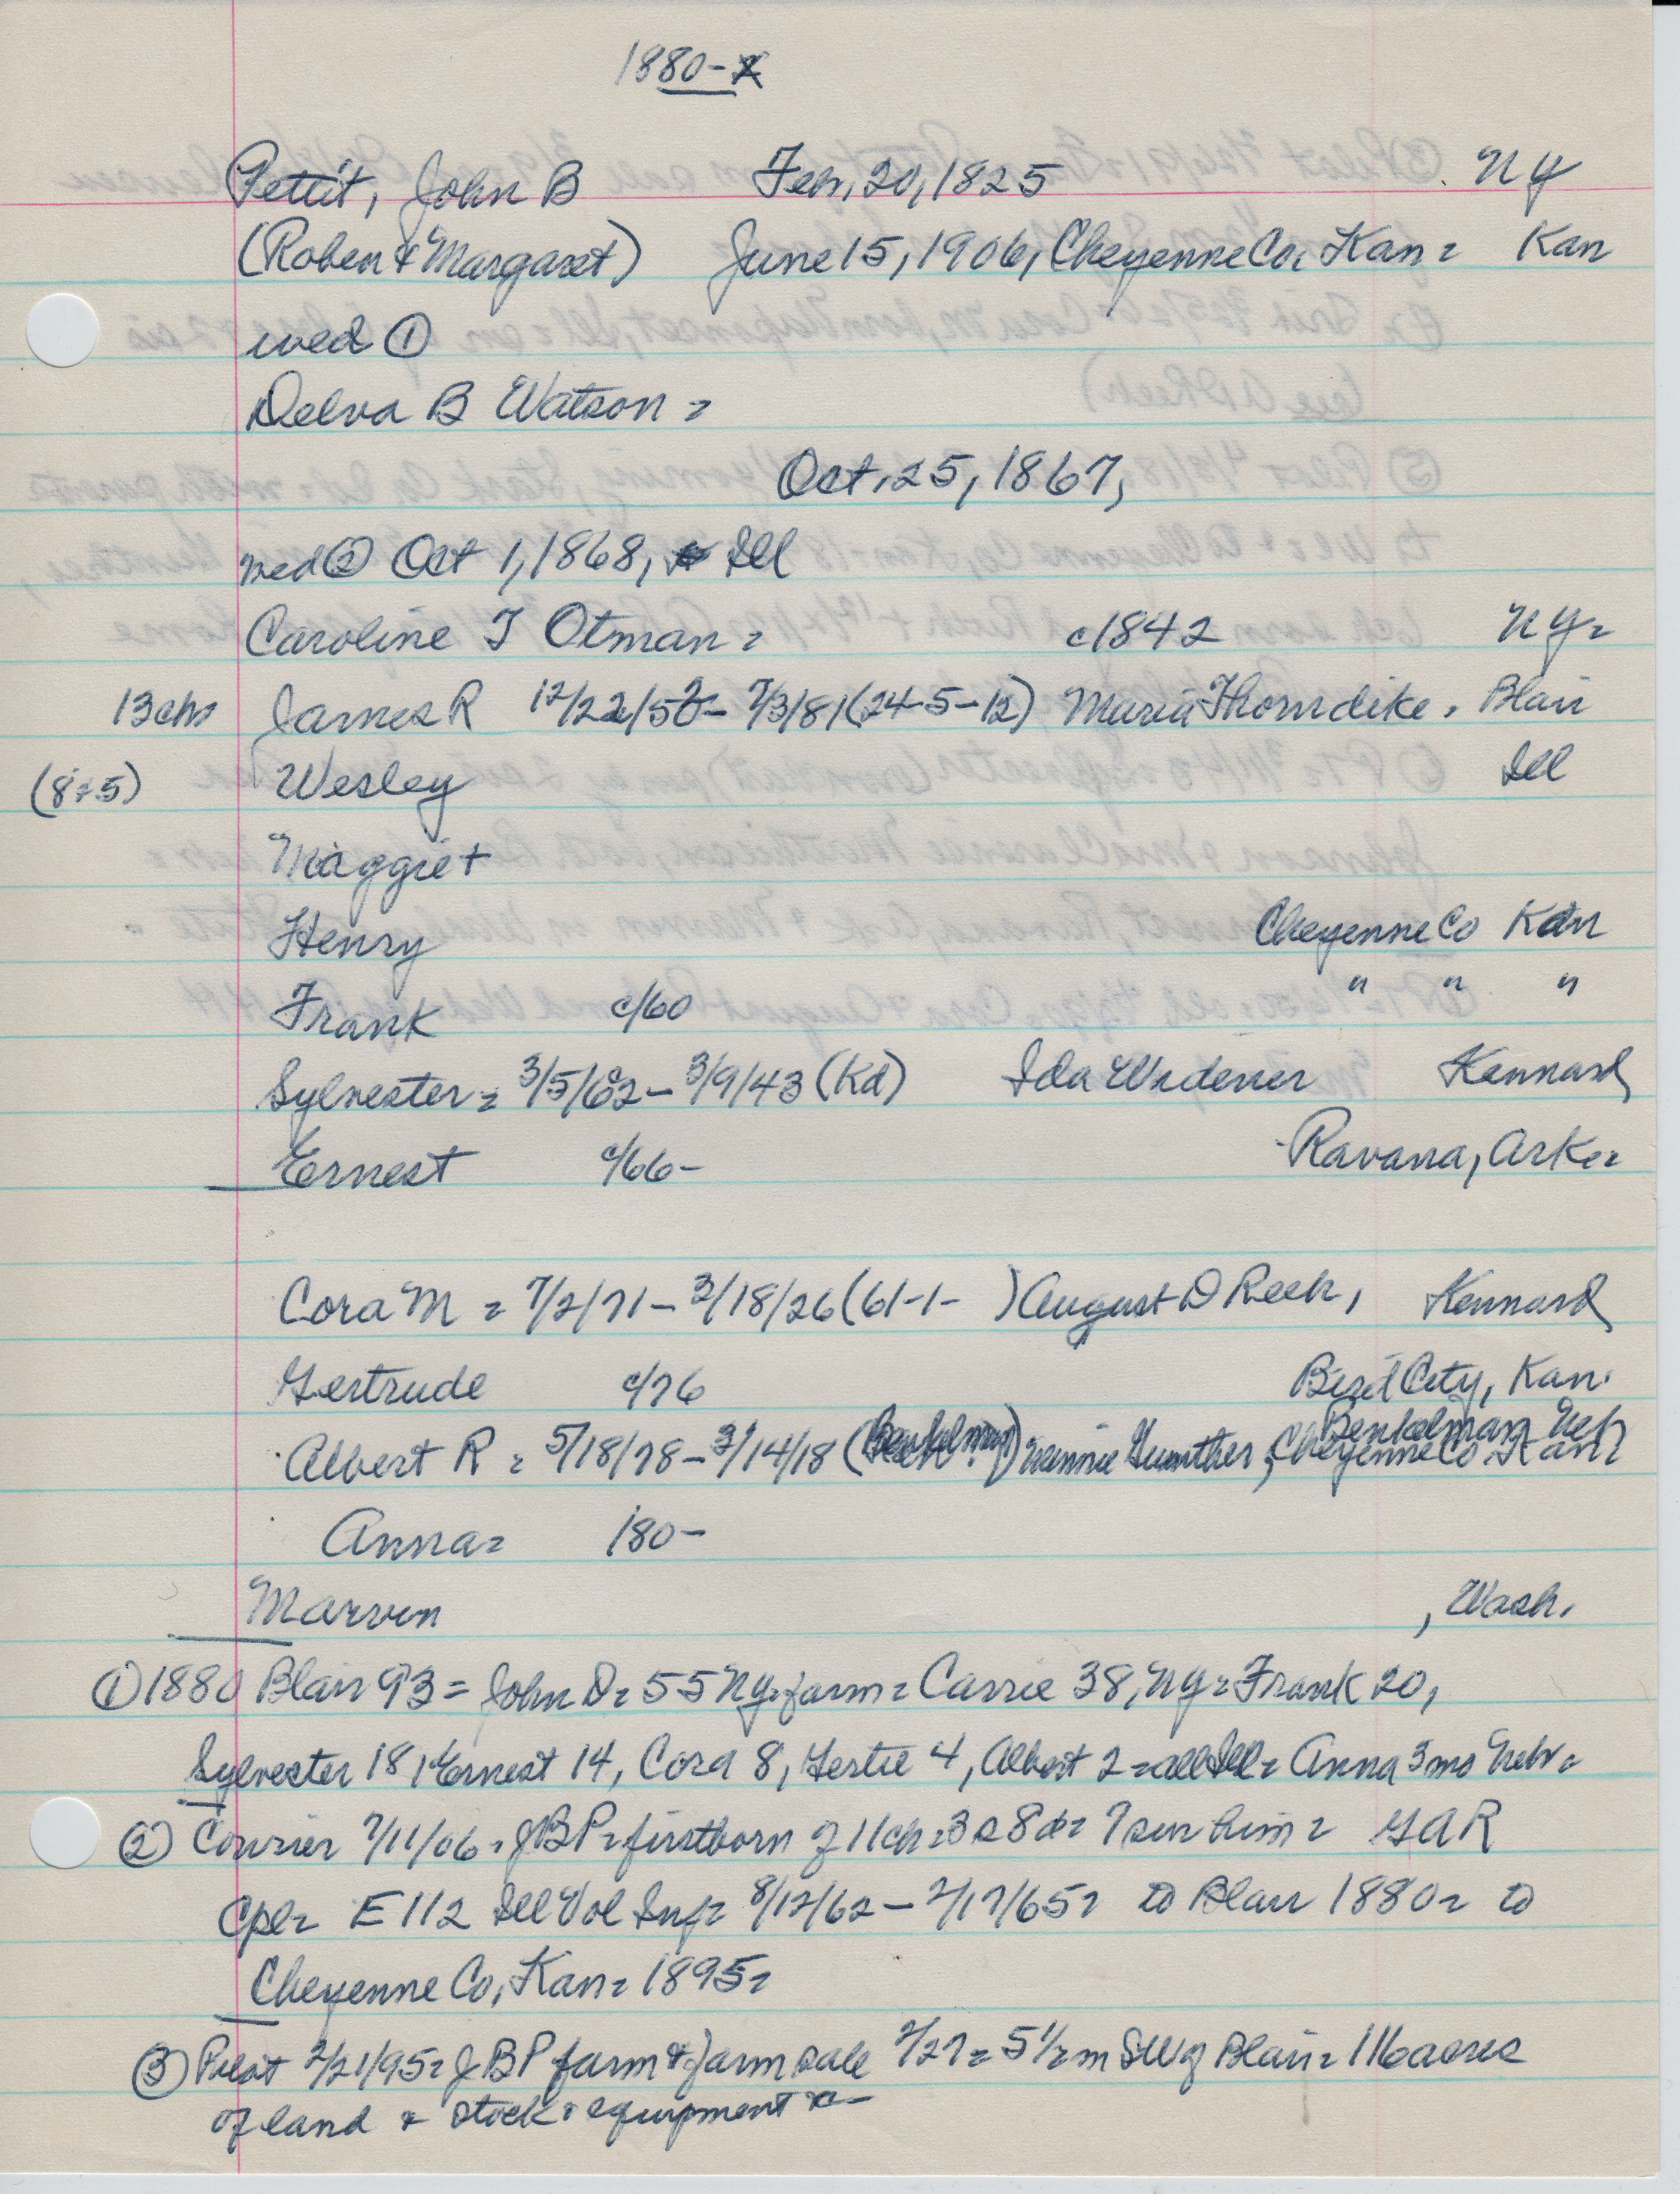 1880-x
Pettit, John B Feb, 20, 1825 NY
(Roben & Margaret) June 15, 1906, Cheyenne Co, Kan = Kan
wed ①
Delva B Watson =
Oct, 25, 1867,
wed ② Oct 1, 1868, Ill
Caroline T Otman = c1842 NY=
13chs James R 12/22/56- 7/3/81 (24-5-12) Maria Thorndike, Blair
(8+5) Wesley Ill
Maggie+
Henry Cheyenne Co Kan
Frank c/60 " " "
Sylvester = 3/5/62- 3/9/43 (Kd) Ida Widener Kennard
Ernest c/66- Ravana, Ark=
Cora M = 7/2/71- 3/18/26 (61-1- ) August D Reeh, Kennard
Gertrude c/76 Bird City, Kan.
Benkelman Neb
Albert R = 5/18/78- 3/14/18 (Benkelman) Minnie Gunther, Cheyenne Co Kan=
Anna= 180-
Marvin , Wash.
① 1880 Blair 93 = John D= 55 NY= farm= Carrie 38, NY= Frank 20,
Sylvester 18, Ernest 14, Cora 8, Gertie 4, Albert 2 = all Ill= Anna 3mo Nebr=
② Courier 7/11/06= JBP= firstborn of 11ch= 3s 8d= 7 sur him= GAR
Cpl= E 112 Ill Vol Inf= 8/12/62- 7/17/65= to Blair 1880= to
Cheyenne Co, Kan= 1895=
③ Pilot 2/21/95= JBP farm & farm sale 2/27= 5 1/2 m SW of Blair= 116 acres
of land & stock & equipment